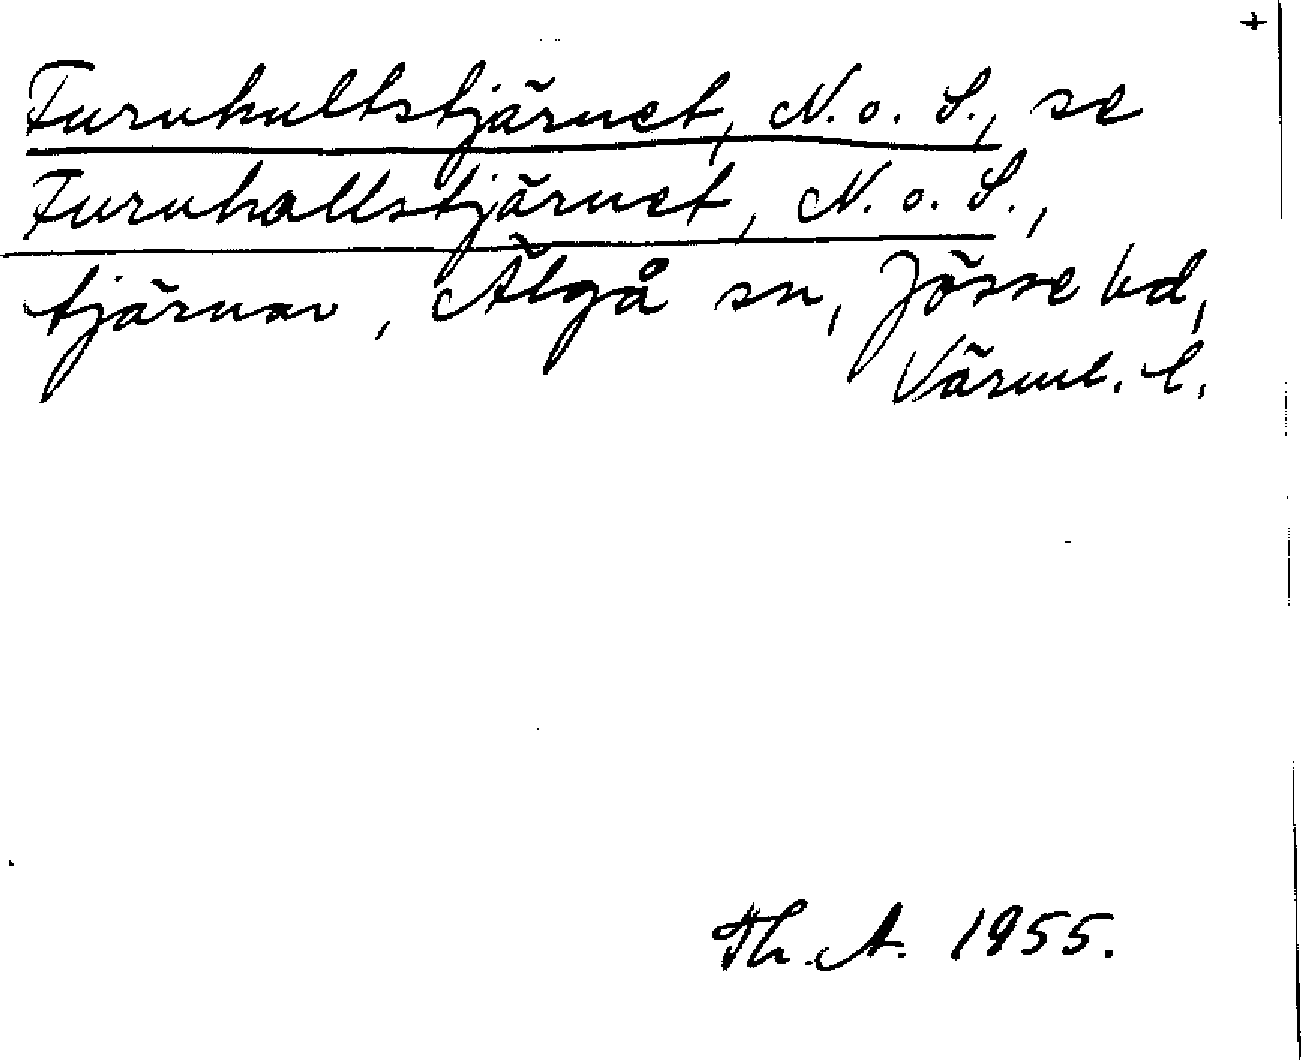 +
Furuhultstjärnet, N. o. S., se
Furuhallstjärnet, N. o. S.,
tjärnar, Älgå sn, Jösse hd,
Värml. l.
Th. A. 1955.